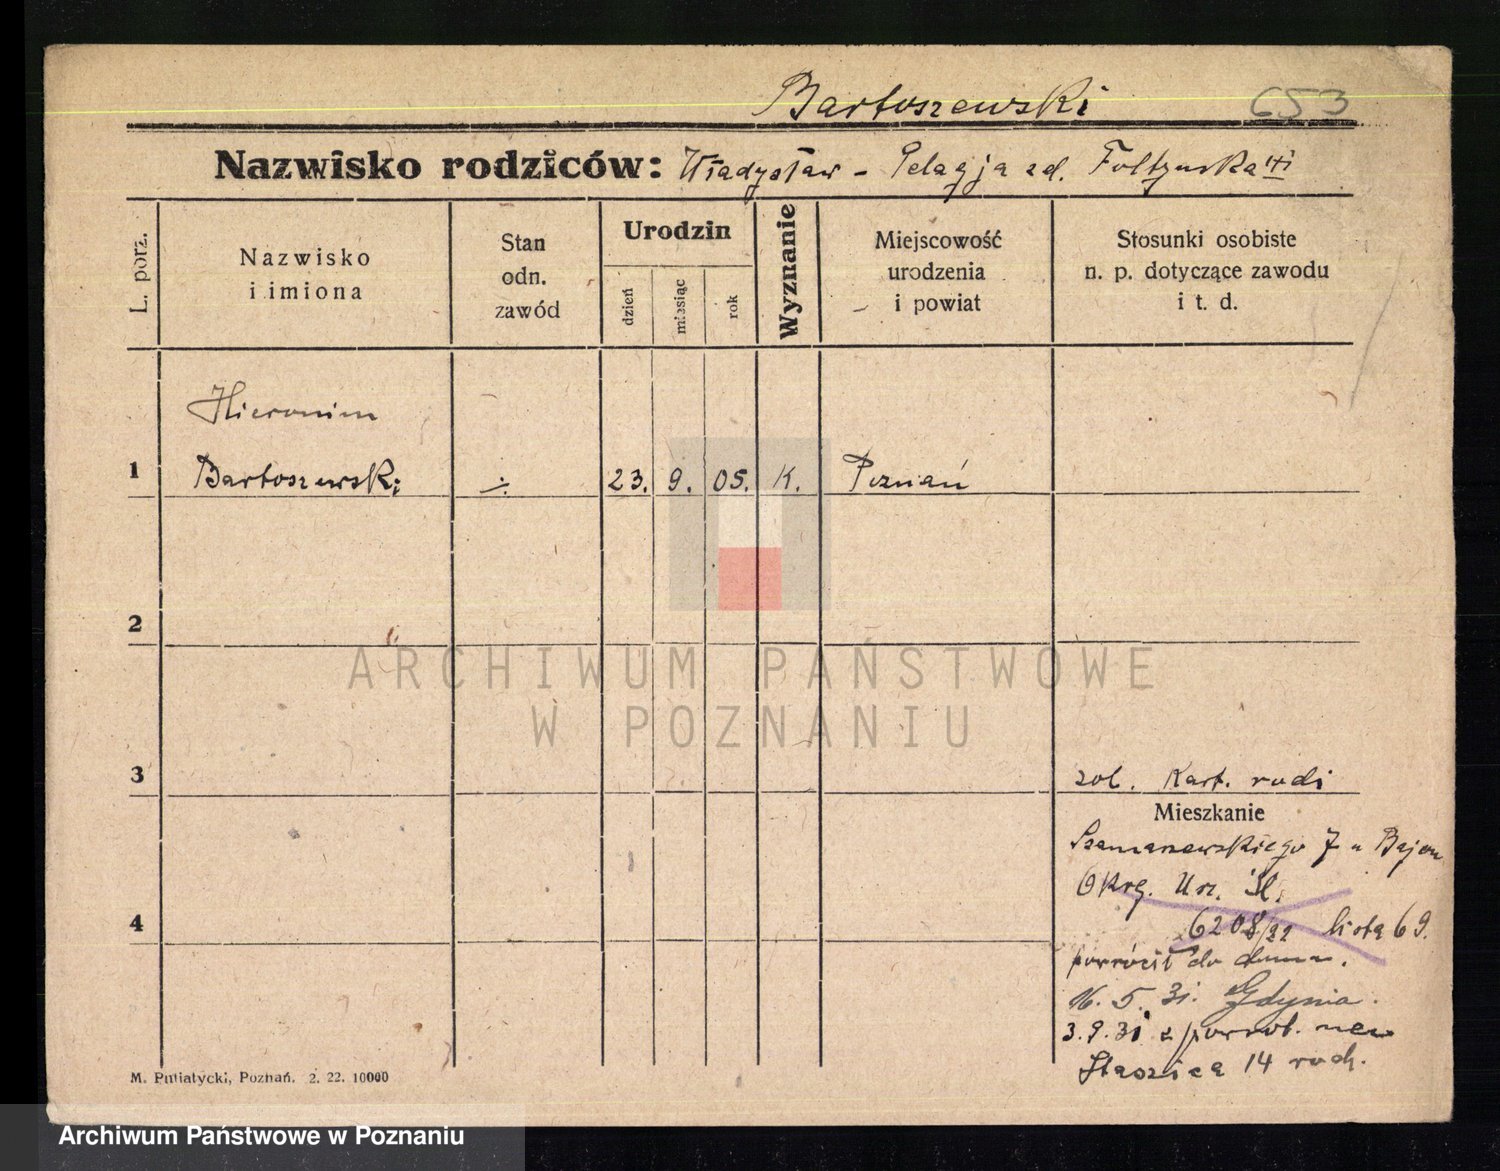 Bartoszewski 653
Nazwisko rodziców: Władysław - Pelagja zd.
L. porz.
Nazwisko
i imiona
Stan
odn.
zawód
Urodzin
dzień
miesiąc
rok
Wyznanie
Miejscowość
urodzenia
i powiat
Stosunki osobiste
n. p. dotyczące zawodu
i t. d.
Hieronim
1 Bartoszewski 23. 9. 05. K. Poznań
2
3
zob. Kart. rodz
Mieszkanie
Szamarzewskiego 7
Okrę. Urz.
4
6208/22 lista 69.
powrócił do domu.
16. 5. 31. Gdynia.
3.9.31 z powrot.
Staszica 14
M. Putiatycki, Poznań. 2. 22. 10000
ARCHIWUM PAŃSTWOWE
W POZNANIU
Archiwum Państwowe w Poznaniu